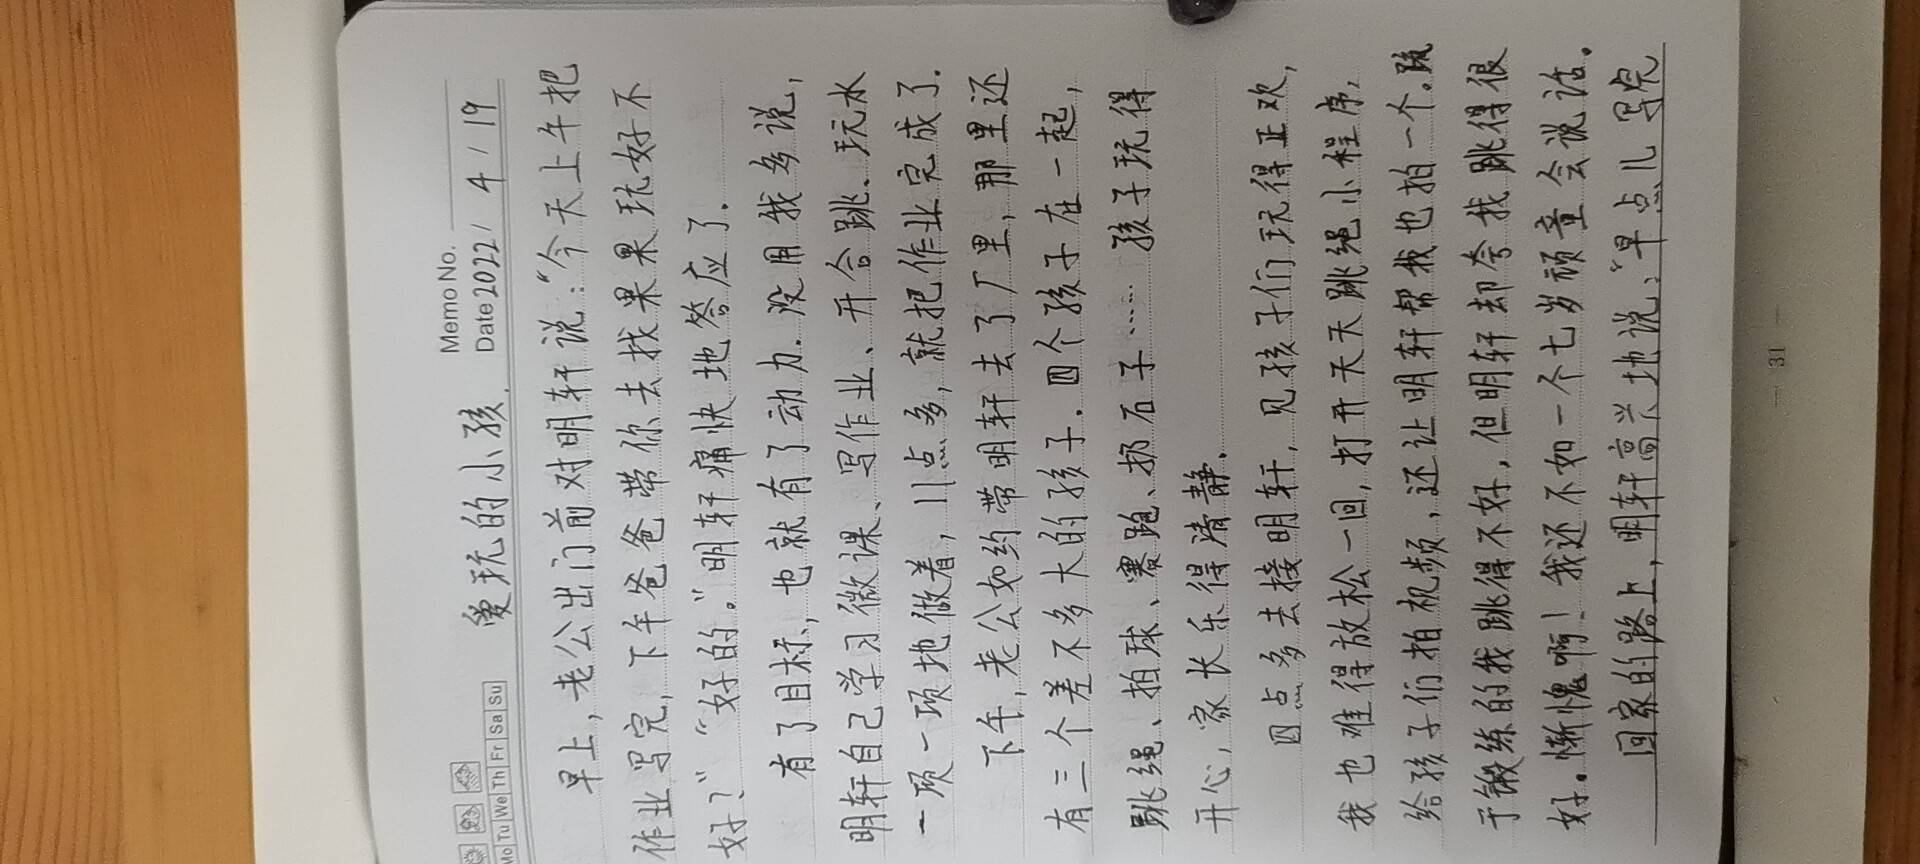 Memo No.
Mo Tu We Th Fr Sa Su
Date 2022/ 4 / 19
爱玩的小孩.
早上，老公出门前对明轩说：“今天上午把
作业写完，下午爸爸带你去找果果玩好不
好？”“好的。”明轩痛快地答应了.
有了目标，也就有了动力.没用我多说，
明轩自己学习微课、写作业、开合跳.玩水
一项一项地做着，11点多，就把作业完成了.
下午，老公如约带明轩去了厂里，那里还
有三个差不多大的孩子.四个孩子在一起，
跳绳、拍球、赛跑、扔石子……孩子玩得
开心，家长乐得清静.
四点多去接明轩，见孩子们玩得正欢，
我也难得放松一回，打开天天跳绳小程序，
给孩子们拍视频，还让明轩帮我也拍一个.疏
于锻练的我跳得不好，但明轩却夸我跳得很
好.惭愧啊！我还不如一个七岁顽童会说话。
回家的路上，明轩高兴地说：“早点儿写完
— 31 —